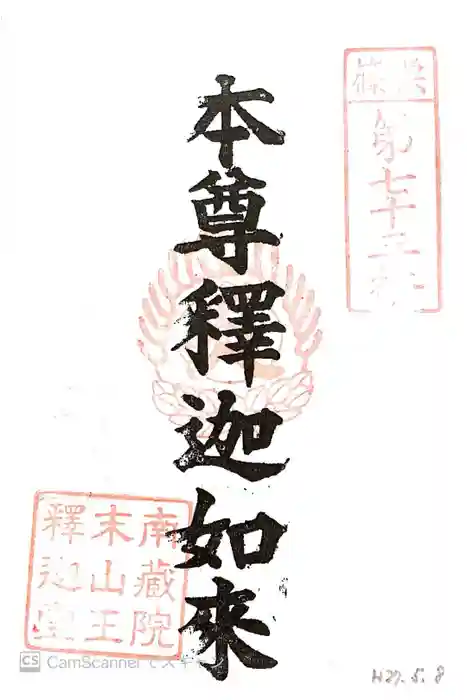 篠栗
第七十三番
本尊釋迦如來
南藏院
末山王
釋迦堂
CS CamScanner でスキャン
H27.5.8